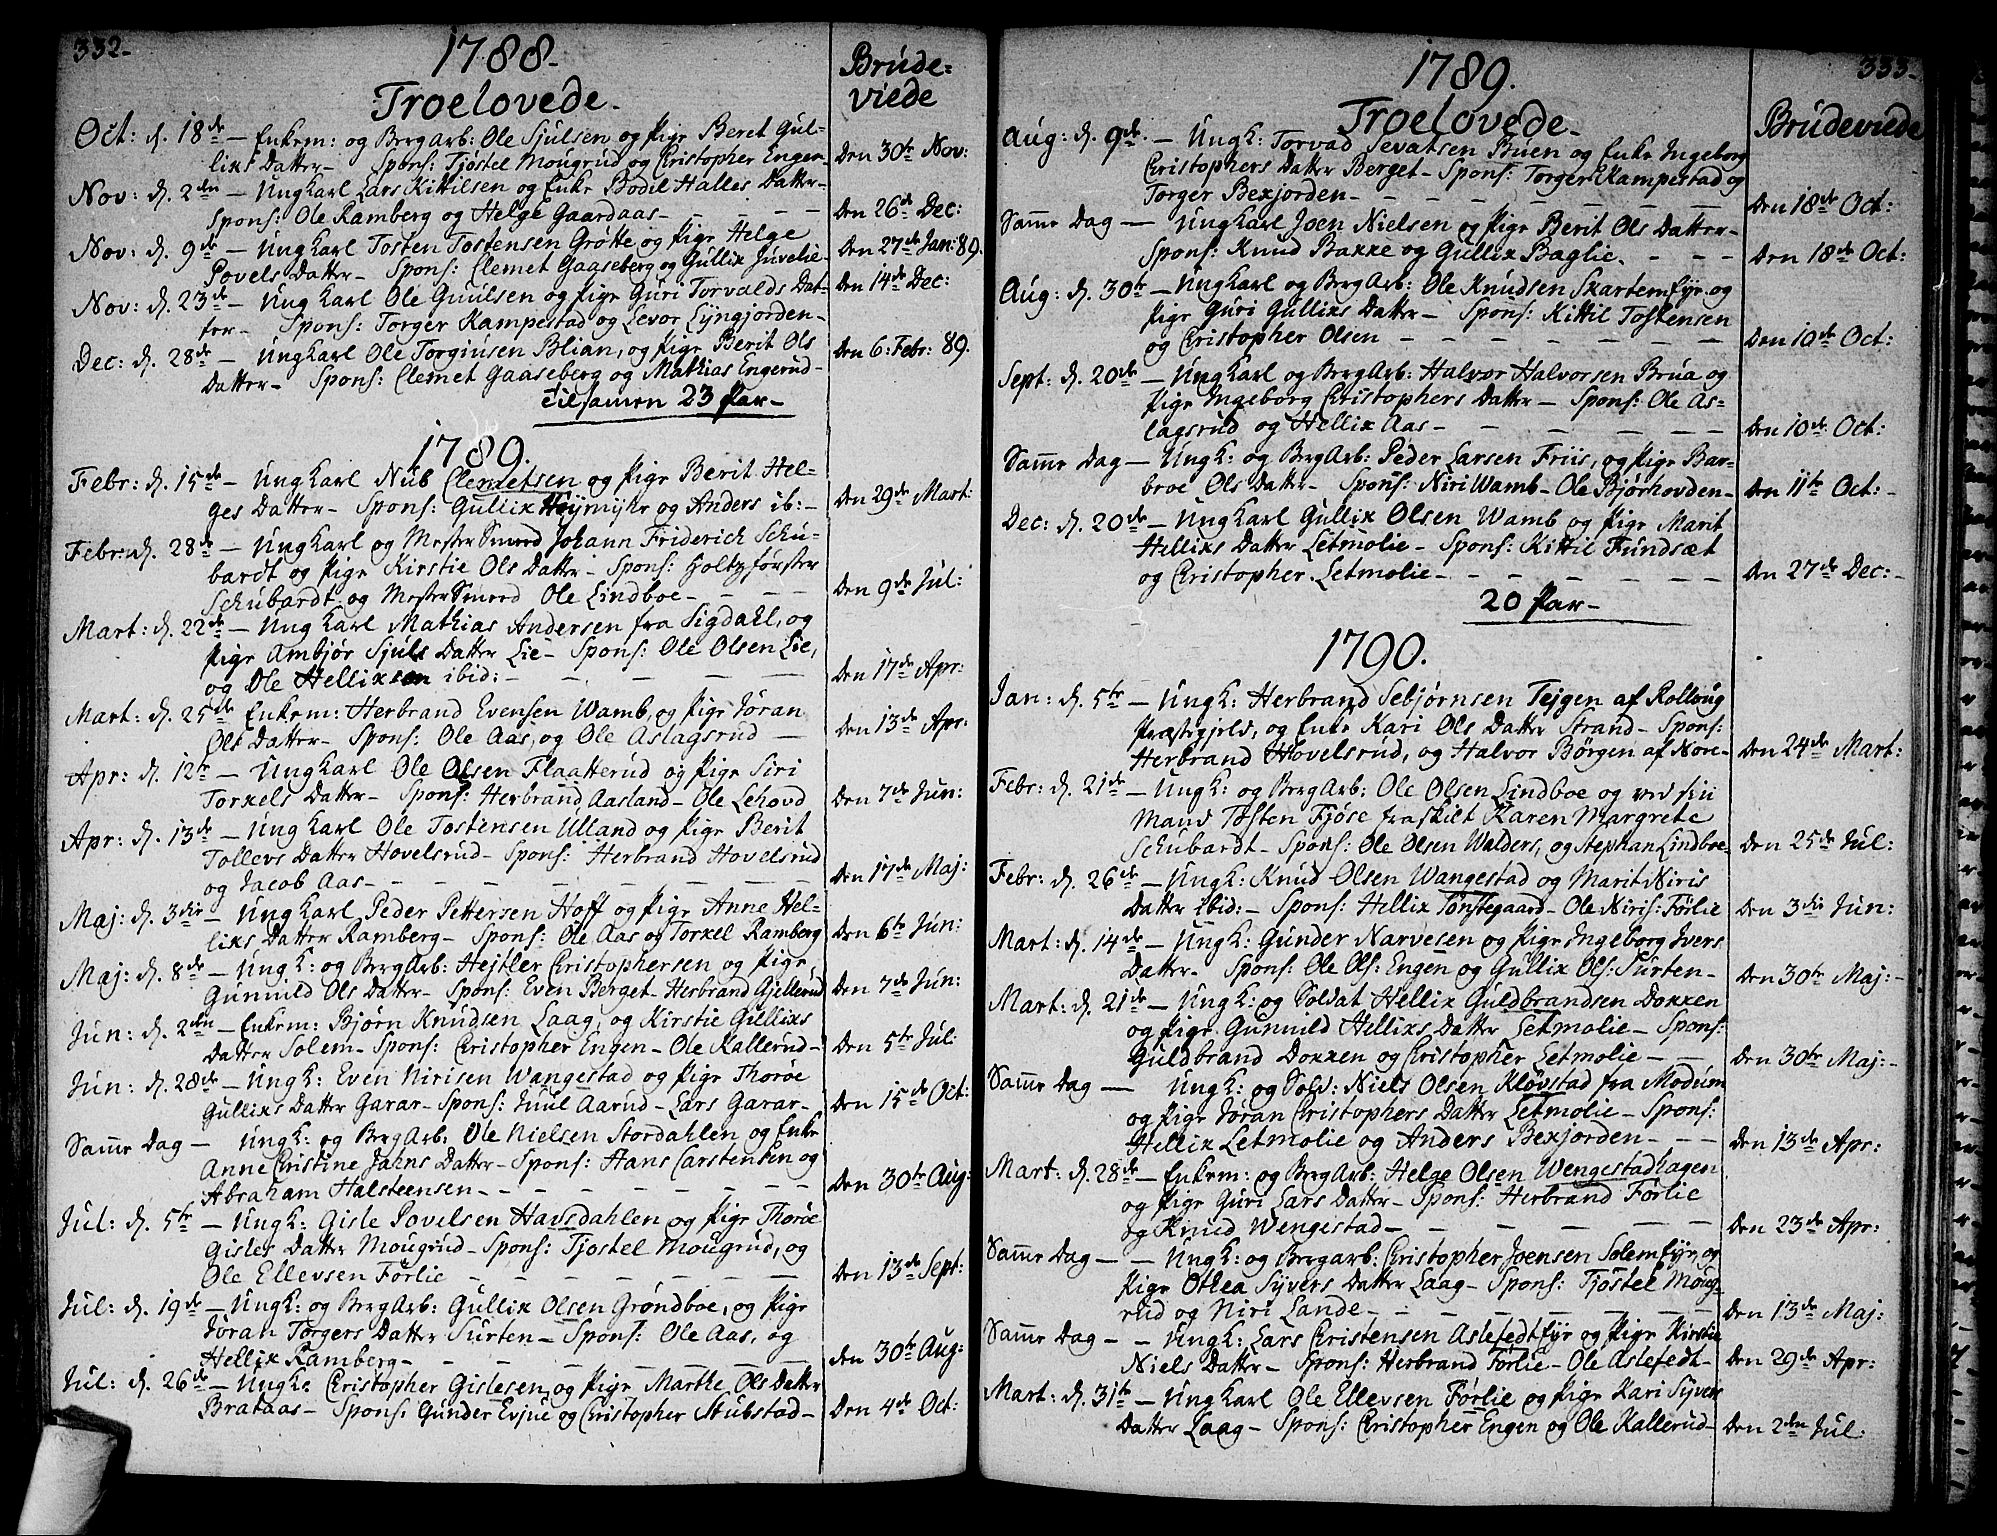 332-
1788-
Troelovede-
Brude=
viede
Oct: d. 18de — Enkem: og BergArb: Ole Sjulsen og Pige Beret Gul-
liks Datter- Spons: Tjostel Mougrud og Cristopher Engen-
Den 30te Nov:
Nov: d. 2den — UngKarl Lars Kittilsen og Enke Bodil Halles Datter-
Spons: Ole Ramberg og Helge Gaardaas- - - -
Den 26de Dec:
Nov: d. 9de — UngKarl Tosten Tostensen Grøtte og Pige Helge
Povels Datter- Spons: Clemet Gaaseberg og Gullix Juvelie-
Den 27de Jan: 89.
Nov: d. 23de — UngKarl Ole Guulsen og Pige Guri Torvalds Dat-
ter- Spons: Torger Kampestad og Levor Lyngjorden-
Den 14de Dec:
Dec: d. 28de — UngKarl Ole Torgiusen Blian, og Pige Berit Ols
Datter- Spons: Clemet Gaaseberg og Mathias Engerud-
Den 6: Febr: 89.
Tilsamen 23 Par-
1789.
Febr: d. 15de — UngKarl Nub Clemetsen og Pige Berit Hel-
ges Datter- Spons: Gullix Høymyhr og Anders ib:-
Den 29de Mart:
Febr: d. 28de — UngKarl og MesterSmed Johann Friderich Schu-
bardt og Pige Kirstie Ols Datter- Spons: Holtzførster
Schubardt og MesterSmed Ole Lindboe- - - -
Den 9de Jul:
Mart: d. 22de — UngKarl Mathias Andersen fra Sigdahl, og
Pige Ambjør Sjuls Datter Lie- Spons: Ole Olsen Lie,
og Ole Hellixsen ibid:- - - - -
Den 17de Apr:
Mart: d. 25de Enkem: Herbrand Evensen Wamb, og Pige Jøran
Ols Datter- Spons: Ole Aas, og Ole Aslagsrud —
Den 13de Apr:
Apr: d. 12te — UngKarl Ole Olsen Flaatterud og Pige Siri
Torkels Datter- Spons: Herbrand Aasland- Ole Lehovd
Den 7de Jun:
Apr: d. 13de — UngKarl Ole Tostensen Ulland og Pige Berit
Tollevs Datter Hovelsrud- Spons: Herbrand Hovelsrud
og Jacob Aas- - - - - -
Den 17de Maj:
Maj: d. 3die — UngKarl Peder Pettersen Hoff og Pige Anne Hel-
liks Datter Ramberg- Spons: Ole Aas og Torkel Ramberg
Den 6te Jun:
Maj: d. 8de — UngK: og BergArb: Hejtler Cristophersen og Pige
Gunnild Ols Datter- Spons: Even Berget- Herbrand Gjellerud
Den 7de Jun:
Jun: d. 2den — Enkem: Bjørn Knudsen Laag, og Kirstie Gulliks
Datter Solem- Spons: Cristopher Engen- Ole Kallerud-
Den 5te Jul:
Jun: d. 28de — UngK: Even Nirisen Wangestad og Pige Thorøe
Gulliks Datter Garar- Spons: Juul Aarud- Lars Garar-
Den 15de Oct:
Samme Dag — UngK: og BergArb: Ole Nielsen Stordahlen og Enke
Anne Cristine Jahns Datter- Spons: Hans Carstensen og
Abraham Halsteensen- - - - - -
Den 30te Aug:
Jul: d. 5te — UngK: Gisle Povelsen Havsdahlen og Pige Thorøe
Gisles Datter Mougrud- Spons: Tjostel Mougrud, og
Ole Ellevsen Førlie - - - - -
Den 13de Sept:
Jul: d. 19de — UngK: og BergArb: Gullix Olsen Grøndboe, og Pige
Jøran Torgers Datter Surten- Spons: Ole Aas, og
Hellix Ramberg- - - - - -
den 30te Aug:
Jul: d. 26de — UngK: Cristopher Gislesen og Pige Marthe Ols Datter
Brataas- Spons: Gunder Evjue og Cristopher Stubstad-
Den 4de Oct:
1789.
333-
Troelovede-
Brudeviede
Aug: d. 9de — UngK: Torvad Sevatsen Buen og Enke Ingeborg
Cristophers Datter Berget- Spons: Torger Kampestad og
Torger Bexjorden- - - - - -
Den 18de Oct:
Samme Dag — UngKarl Joen Nielsen og Pige Berit Ols Datter-
Spons: Knud Bakke og Gullix Baglie. - - -
Den 18de Oct:
Aug: d. 30te — UngKarl og BergArb: Ole Knudsen Skartemfyr og
Pige Guri Gulliks Datter- Spons: Kittil Tostensen
og Cristopher Olsen - - - - -
Den 10de Oct:
Sept: d. 20de — UngKarl og BergArb: Halvor Halvorsen Brua og
Pige Ingeborg Cristophers Datter- Spons: Ole As-
lagsrud og Hellix Aas- - - - -
Den 10de Oct:
Samme Dag — UngK: og BergArb: Peder Larsen Friis, og Pige Bar-
broe Ols Datter- Spons: Niri Wamb- Ole Bjørhovden-
Den 11te Oct:-
Dec: d. 20de — UngKarl Gullix Olsen Wamb og Pige Marit
Helliks Datter Letmolie- Spons: Kittil Fundsæt
og Cristopher Letmolie- - - - -
Den 27de Dec:-
20 Par-
1790.
Jan: d. 5te — UngK: Herbrand Sebjørnsen Tejgen af Rollaug
Præstegjeld, og Enke Kari Ols Datter Strand- Spons:
Herbrand Hovelsrud, og Halvor Børgen af Nore-
Den 24de Mart:
Febr: d. 21de — UngK: og BergArb: Ole Olsen Lindboe og ved sin
Mand Tosten Fjøse fraskilt Karen Margrete
Schubardt- Spons: Ole Olsen Walders, og Stephan Lindboe-
Den 25de Jul:
Febr: d. 26de — UngK: Knud Olsen Wangestad og Marit Niris
Datter ibid:- Spons: Hellix Tonstegaard- Ole Niris: Førlie
Den 3die Jun:
Mart: d. 14de — UngK: Gunder Narvesen og Pige Ingeborg Ivers
Datter- Spons: Ole Ols: Engen og Gullix Ols: Surten-
Den 30te Maj:-
Mart: d. 21de — UngK: og Soldat Hellix Guldbrandsen Dokken
og Pige Gunnild Helliks Datter Letmolie- Spons:
Guldbrand Dokken og Cristopher Letmolie- -
Den 30te Maj:-
Samme Dag — UngK: og Sold: Niels Olsen Kløvstad fra Modum
og Pige Jøran Cristophers Datter Letmolie- Spons:
Hellix Letmolie og Anders Bexjorden- - -
Den 13de Apr:
Mart: d. 28de — Enkem: og BergArb: Helge Olsen Wengestadhagen
og Pige Guri Lars Datter- Spons: Herbrand Førlie
og Knud Wengestad- - - - -
Den 23de Apr:
Samme Dag — UngK: og Bergarb: Cristopher Joensen Solemfyr, og
Pige Othea Syvers Datter Laag- Spons: Tjostel Moug-
rud og Niri Lande- - - - -
Den 13de Maj:
Samme Dag- — UngK: Lars Cristensen Aslefedtfyr og Pige Kirstie
Niels Datter- Spons: Herbrand Førlie- Ole Aslefedt-
Den 29de Apr:
Mart: d. 31te — UngKarl Ole Ellevsen Førlie og Pige Kari Syvers
Datter Laag- Spons: Cristopher Engen og Ole Kallerud-
Den 2den Jul: